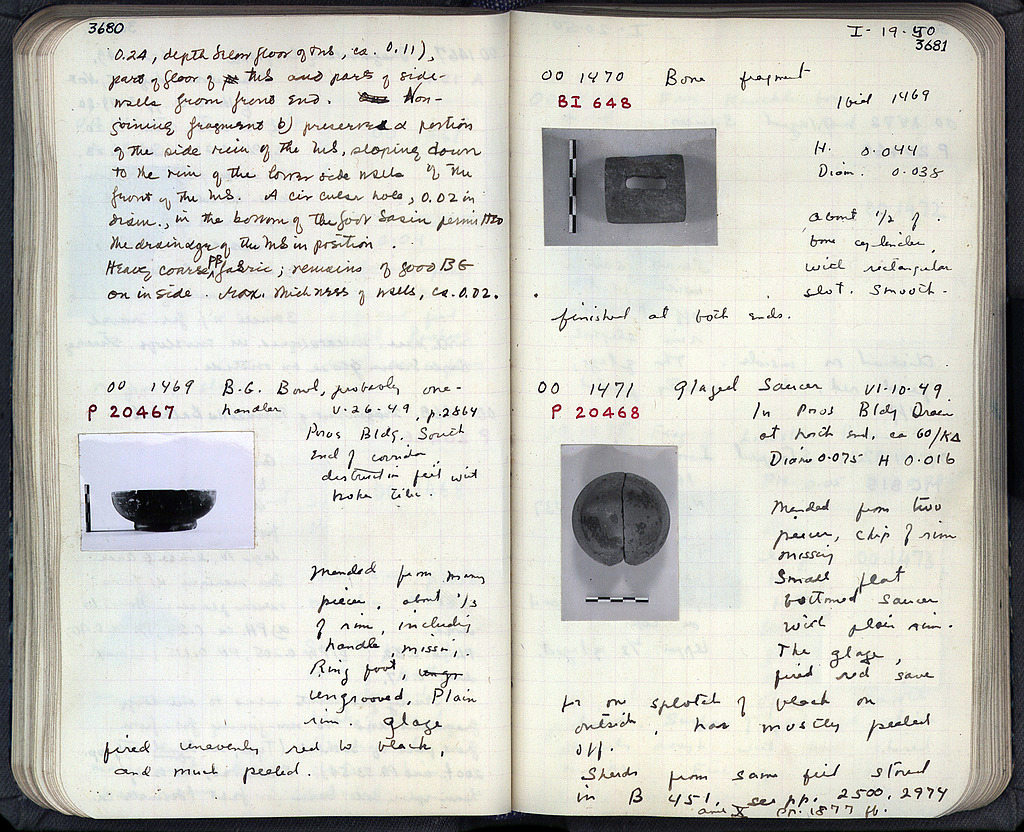 3680
0.24, depth below floor of MS, ca. 0.11),
part of floor of MS and part of side-
walls from front end. Non-
joining fragment b) preserves a portion
of the side rim of the MS, sloping down
to the rim of the lower side walls of the
front of the MS. A circular hole, 0.02 in
diam., in the bottom of the foot basin permitted
the drainage of the MS in position.
Heavy coarse PB fabric; remains of good BG
on inside. Max. thickness of walls, ca. 0.02.
OO 1469 B.G. Bowl, probably one-
P 20467 handler V-26-49, p.2864
Poros Bldg. South
End of corridor,
destruction fill with
broken tile.
Mended from many
pieces, about 1/3
of rim, including
handle, missing.
Ring foot,
ungrooved. Plain
rim. glaze
fired unevenly red to black,
and much peeled.
I-19-50
3681
OO 1470 Bone fragment
BI 648 Ibid 1469
H. 0.044
Diam. 0.038
About 1/2 of
bone cylinder,
with rectangular
slot. Smooth-
finished at both ends.
OO 1471 Glazed Saucer VI-10-49.
P 20468 In Poros Bldg Drain
at north end, ca 60/ΚΔ
Diam 0.075 H 0.016
Mended from two
pieces, chip of rim
missing
Small flat
bottomed saucer
with plain rim.
The glaze,
fired red save
for one splotch of black on
outside, has mostly peeled
off.
Sherds from same fill stored
in B 451, see pp. 2500, 2974
and pp. 1877 ff.